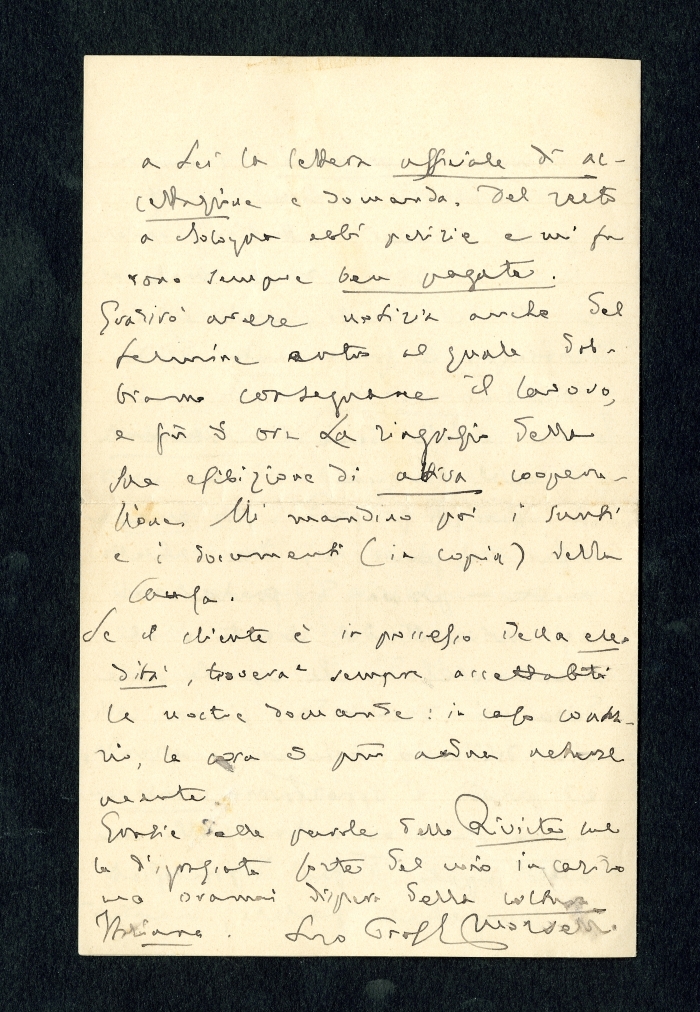 a Lei la lettera ufficiale di ac-
cettazione e domanda. Del resto
a Bologna ebbi perizie e mi fu
rono sempre ben pagate.
Gradirò avere notizia anche del
termine entro al quale dob-
biamo consegnare il lavoro,
e fin d'ora La ringrazio della
Sua esibizione di attiva coopera-
zione. Mi mandino poi i sunti
e i documenti (in copia) della
Causa.
Se il cliente è in possesso della ere
dità, troverà sempre accettabili
le nostre domande: in caso contra-
rio, la cosa è
Grazie delle parole della Rivista sul
la disgraziata sorte del mio
ma oramai della coltura
Italiana. Suo Morselli